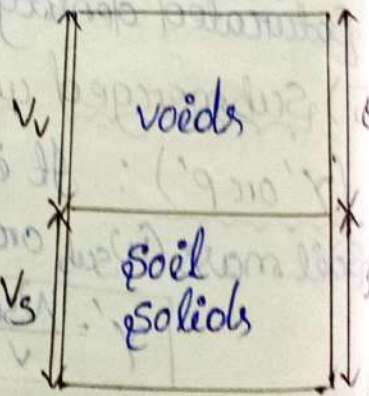 Vv
voids
Vs
soil
solids